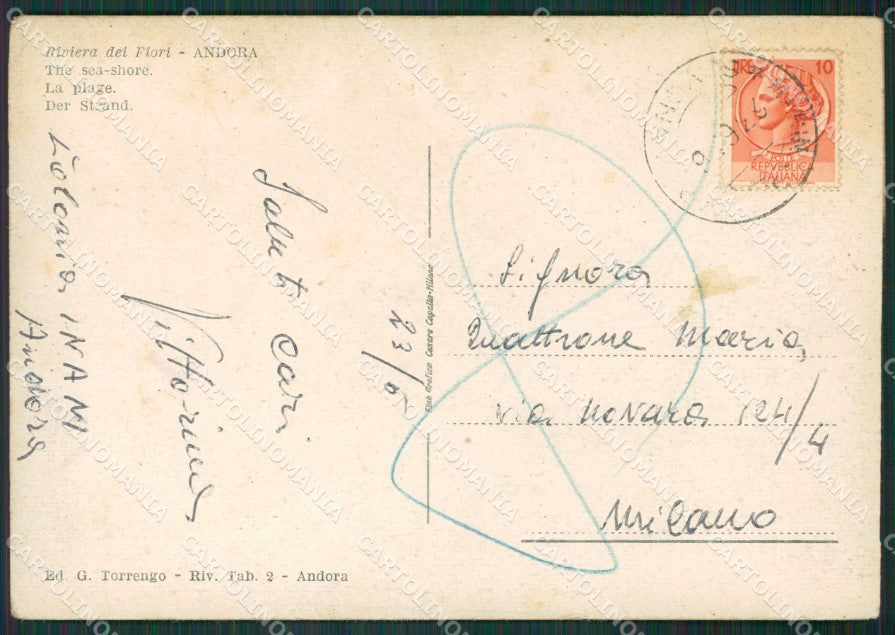 Riviera dei Fiori - ANDORA
The sea-shore.
La plage.
Der Strand.
Colonia INAM
Andora
Saluti cari
Vittorina
23/6
Stab Grafico Cesare Capello-Milano
10
REPVBBLICA
ITALIANA
Signora
Quattrone Maria
via Novara 124/4
Milano
Ed. G. Torrengo - Riv. Tab. 2 - Andora
CARTOLINOMANIA